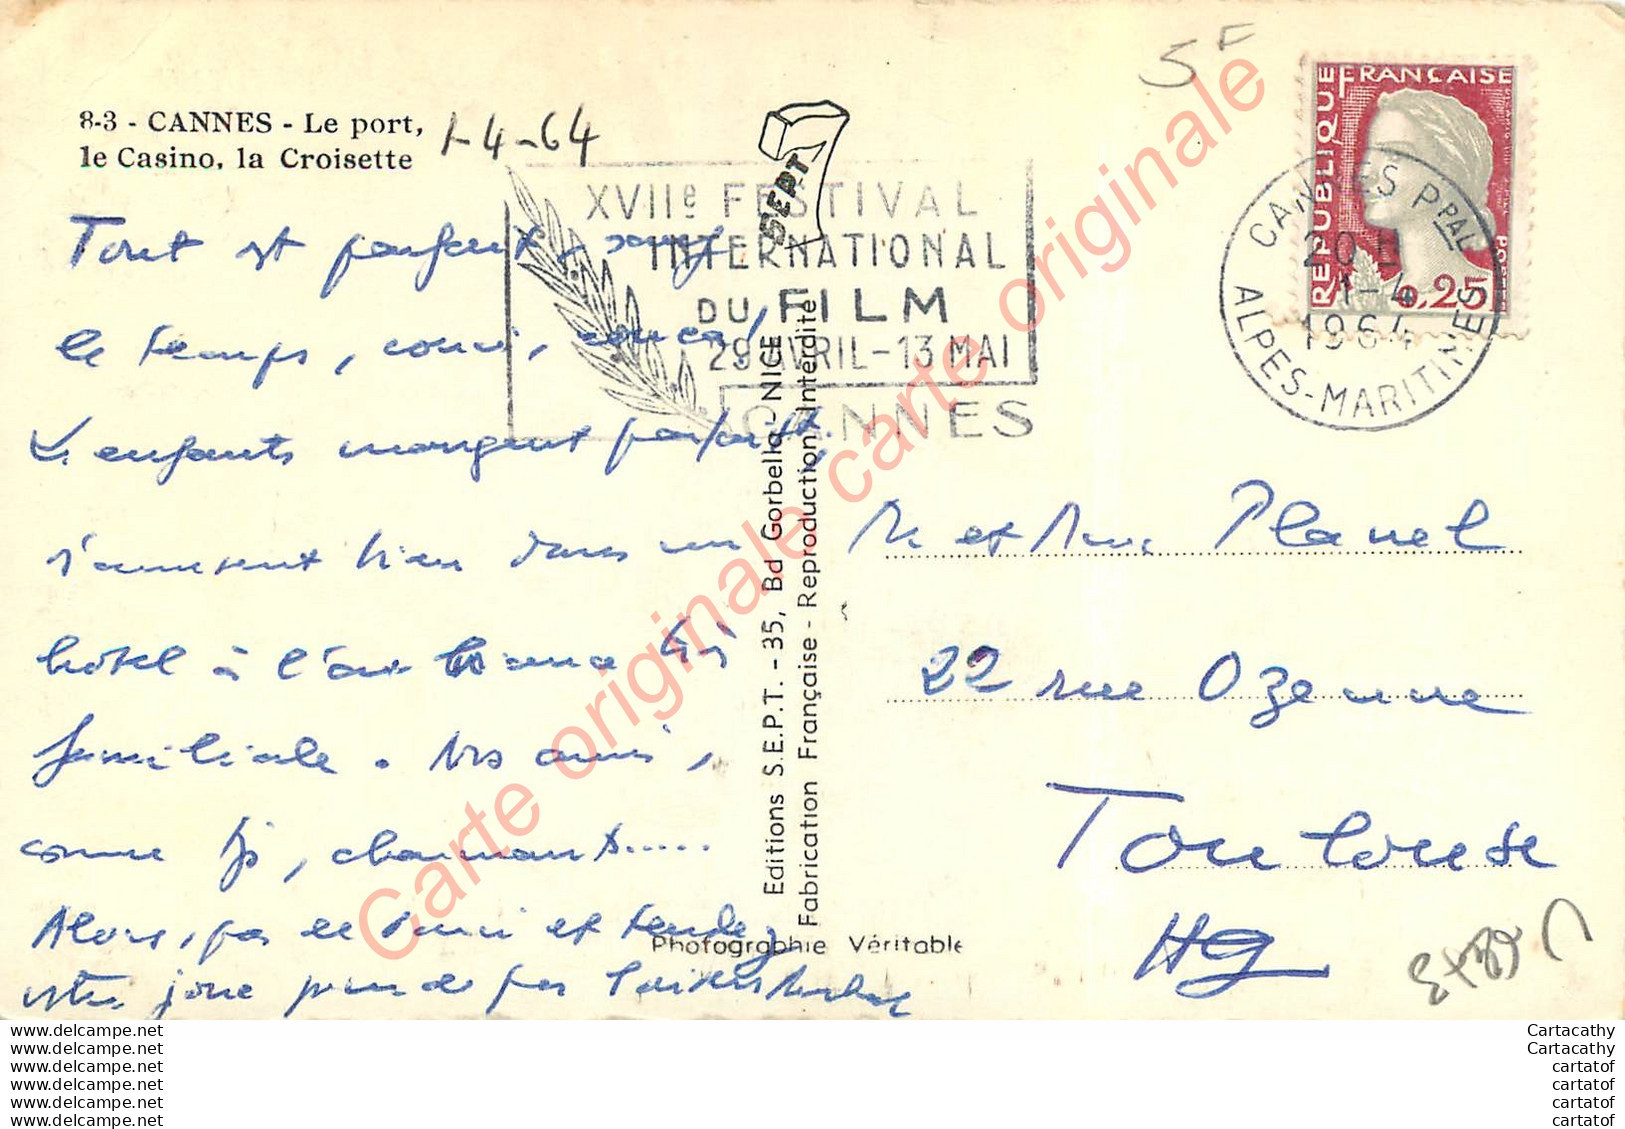 8-3 - CANNES - Le port,
le Casino, la Croisette
1-4-64
5F
SEPT
XVIIe FESTIVAL
INTERNATIONAL
DU FILM
29 AVRIL - 13 MAI
CANNES
REPUBLIQUE FRANÇAISE
POSTES
0,25
CANNES Ppal
20 H
1-4
1964
ALPES-MARITIMES
Tout est parfait, sauf
le temps, couci, couça!
Les enfants mangent parfait,
s'amusent bien dans un
hôtel à l'air
familiale. Nos amis,
comme , charmants.....
Alors, pas de souci et tendez
votre joue pour
Editions S.E.P.T. - 35, Bd Gorbella - NICE
Fabrication Française - Reproduction Interdite
Photographie Véritable
M et Mme Planel
22 rue Ozenne
Toulouse
HG
Carte originale carte originale
www.delcampe.net
www.delcampe.net
www.delcampe.net
www.delcampe.net
www.delcampe.net
www.delcampe.net
Cartacathy
Cartacathy
cartatof
cartatof
cartatof
cartatof